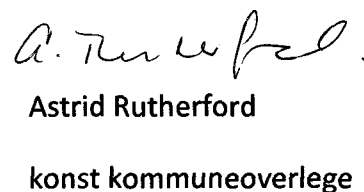 A. Rutherford.
Astrid Rutherford
konst kommuneoverlege